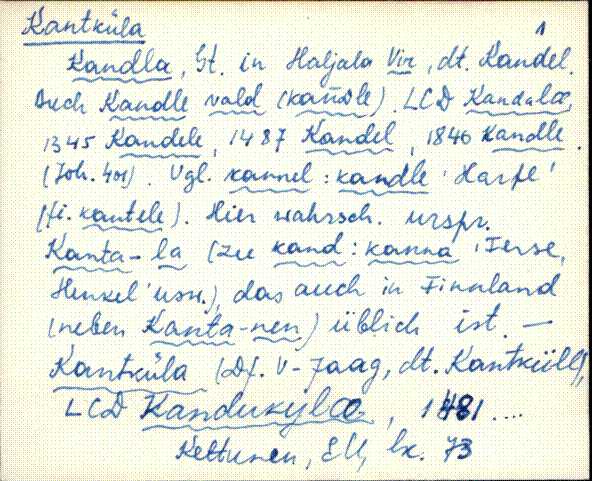 Kantküla 1
Kandla, Gt. in Haljala Vir, dt. Kandel.
Auch Kandle vald (kańdle). LCD Kandalæ,
1345 Kandele, 1487 Kandel, 1840 Kandle.
(Joh. 401). Vgl. kannel : kandle 'Harfe'
(fi. kantele). Hier wahrsch. urspr.
Kanta-la (zu kand : kanna 'Ferse,
Henkel' usw.), das auch in Finnland
(neben Kanta-nen) üblich ist. —
Kantküla (Df. V-Jaag, dt. Kantküll),
LCD Kandukylæ, 1481 ....
Kettunen, EU, lk. 73